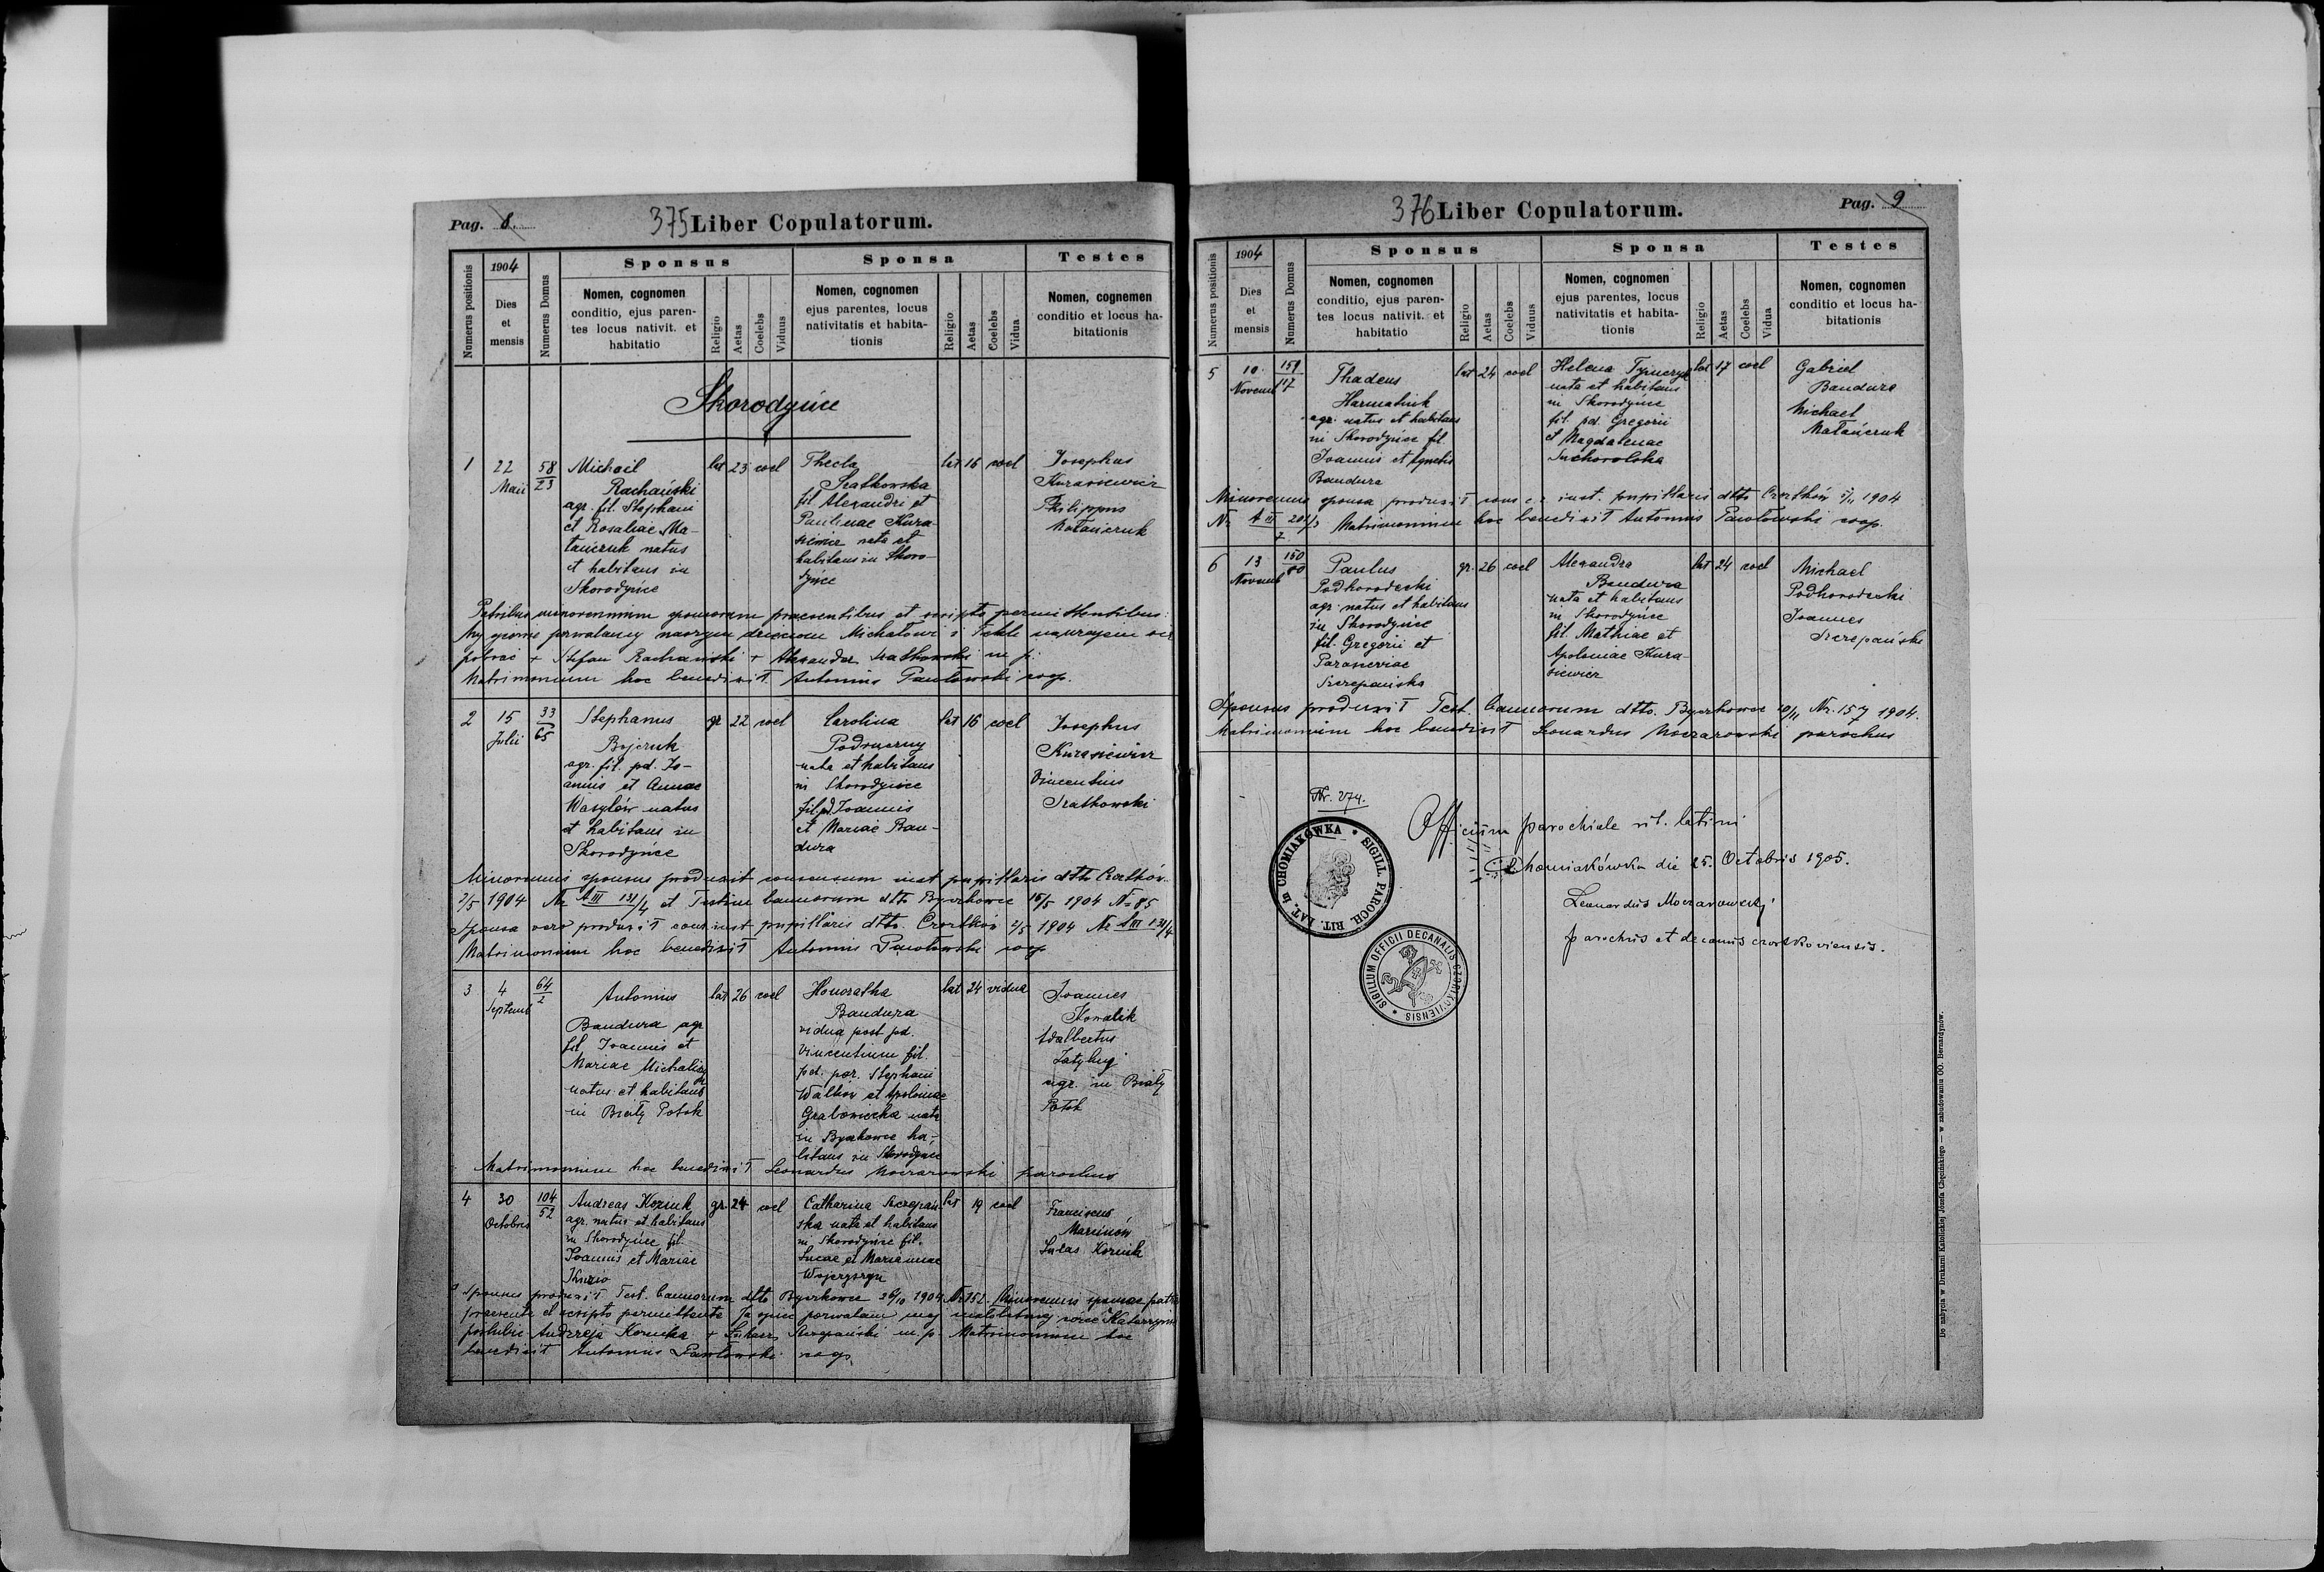 Pag. 8.
375 Liber Copulatorum.
Numerus positionis
1904
Dies
et
mensis
Numerus Domus
Sponsus
Nomen, cognomen
conditio, ejus paren-
tes locus nativit. et
habitatio
Religio
Aetas
Coelebs
Viduus
Sponsa
Nomen, cognomen
ejus parentes, locus
nativitatis et habita-
tionis
Religio
Aetas
Coelebs
Vidua
Testes
Nomen, cognemen
conditio et locus ha-
bitationis
Skorodyńce
1
22
Maii
58
23
Michael
Rachański
agr. fil. Stephani
et Rosaliae Ma-
tańczuk natus
et habitans in
Skorodyńce
lat 23 coel
Thecla
Sratkowska
fil Alexandri et
Paulinae Kura-
siewicz nata et
habitans in Skoro-
dyńce
lat 16 coel
Josephus
Kurasiewicz
Philippus
Matańczuk
Patribus minorennium sponsorum praesentibus et scripto permittentibus:
My ojcowie pozwalamy naszym dzieciom Michałowi i Tekli nawzajem się
pobrać + Stefan Rachański + Alexander Sratkowski m. p.
Matrimonium hoc benedixit Antonius Pawłowski coop.
2
15
Julii
33
65
Stephanus
Bojczuk
agr. fil. pd. Jo-
annis et Annae
Wasylów natus
et habitans in
Skorodyńce
gr 22 coel
Carolina
Podruczny
nata et habitans
in Skorodyńce
fil. pd. Joannis
et Mariae Ban-
dura
lat 16 coel
Josephus
Kurasiewicz
Vincentius
Sratkowski
Minorennis sponsus produxit consensum inst pupillaris dtto Czortków
2/5 1904 Nr A III 131/4 et Testim bannorum dtto Byczkowce 15/5 1904 Nr 85
Sponsa vero produxit cons. inst pupillaris dtto. Czortków 2/5 1904 Nr A III 131/4
Matrimonium hoc benedixit Antonius Pawłowski coop
3
4
Septemb
64
2
Antonius
Bandura agr
fil. Joannis et
Mariae
natus et habitans
in Biały Potok
lat 26 coel
Honoratha
Bandura
vidua post pd.
Vincentium fil.
pd. par. Stephani
Walków et Apoloniae
Grabowiecka nata
in Byczkowce ha-
bitans in Skorodyńce
lat 24 vidua
Joannes
Kowalik
Adalbertus
Zatylny
agr. in Biały
Potok
Matrimonium hoc benedixit Leonardus Moczarowski parochus
4
30
Octobris
104
52
Andreas Koziuk
agr. natus et habitans
in Skorodyńce fil.
Joannis et Mariae
gr. 24 coel
Catharina Szczepań-
ska nata et habitans
in Skorodyńce fil.
Lucae et Mariannae
lat 19 coel
Franciscus
Marcinów
Lucas Koziuk
Sponsus produxit Test. bannorum dtto Byczkowce 26/10 1904 Nr 152. Minorennis sponsae patre
praesente et scripto permittente Ja ojciec pozwalam mej małoletniej córce Katarzynie
poślubić Andrzeja Koziuka + Łukasz Szczepański m. p. Matrimonium hoc
benedixit Antonius Pawłowski coop.
376 Liber Copulatorum.
Pag. 9
Numerus positionis
1904
Dies
et
mensis
Numerus Domus
Sponsus
Nomen, cognomen
conditio, ejus paren-
tes locus nativit. et
habitatio
Religio
Aetas
Coelebs
Viduus
Sponsa
Nomen, cognomen
ejus parentes, locus
nativitatis et habita-
tionis
Religio
Aetas
Coelebs
Vidua
Testes
Nomen, cognomen
conditio et locus ha-
bitationis
5
10
Novemb
159
117
Thadeus
Harmatiuk
agr. natus et habitans
in Skorodyńce fil.
Joannis et Agnetis
Bandura
lat 24 coel
Helena
nata et habitans
in Skorodyńce
fil. pd. Gregorii
et Magdalenae
Suchorolska
lat 17 coel
Gabriel
Bandura
Michael
Matańczuk
Minorennis sponsa produxit cons c. r. inst. pupillaris dtto Czortków 1904
Nr. A III 201/3 Matrimonium hoc benedixit Antonius Pawłowski coop.
6
13
Novemb
150
80
Paulus
Podhorodecki
agr. natus et habitans
in Skorodyńce
fil. Gregorii et
Parascevae
Szczepańska
gr. 26 coel
Alexandra
Bandura
nata et habitans
in Skorodyńce
fil. Mathiae et
Apoloniae Kura-
siewicz
lat 24 coel
Michael
Podhorodecki
Joannes
Szczepański
Sponsus produxit Test. bannorum dtto. Byczkowce 10/11 Nr. 157 1904.
Matrimonium hoc benedixit Leonardus Moczarowski parochus
Nr. 274.
Officium parochiale rit. latini
Chomiakówka die 25. Octobris 1905.
Leonardus Moczarowski
parochus et decanus czortkoviensis.
SIGILL. PAROCH. RIT. LAT. in CHOMIAKÓWKA
SIGILLUM OFFICII DECANALIS CZORTKOVIENSIS
Do nabycia w Drukarni Katolickiej Józefa Chęcińskiego — w zabudowaniu OO. Bernardynów.